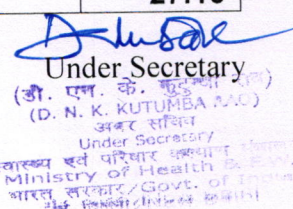 Under Secretary
(डी. एन. के. कुटुम्बा राव)
(D. N. K. KUTUMBA RAO)
अवर सचिव
Under Secretary
स्वास्थ्य एवं परिवार कल्याण
Ministry of Health &
भारत सरकार/Govt. of India